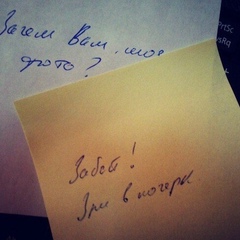 Зачем Вам мое
фото?
Забей!
Зри в почерк